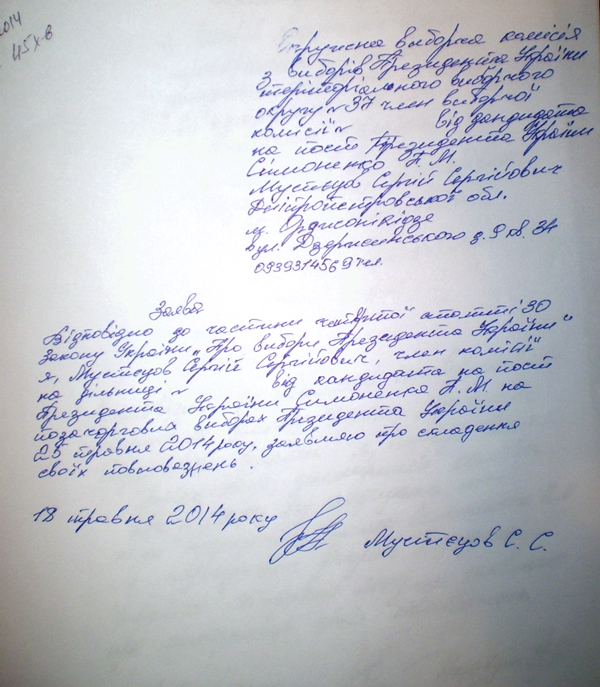 2014
45х-в
Окружна виборча комісія
з виборів Президента України
теріторіального виборчого
округу № 37 член виборчої
комісії № від кандидата
на посте Президента України
Сімоненко П.М.
Мустєцов Сергій Сергійович
Дніпропетровської обл.
м. Орджонікідзе
вул. Дзержинського д. 9 кв. 34
0939314569 тел.
Заява
Відповідно до частини четвертої статті 30
Закону України „Про вибори Президента України"
я, Мустєцов Сергій Сергійович, член комісії
на дільниці № від кандидата на пост
Президента України Симоненка П.М на
позачергових виборах Президента України
25 травня 2014 року, заявляю про складення
своїх повноважень.
18 травня 2014 року
Мустєцов С. С.